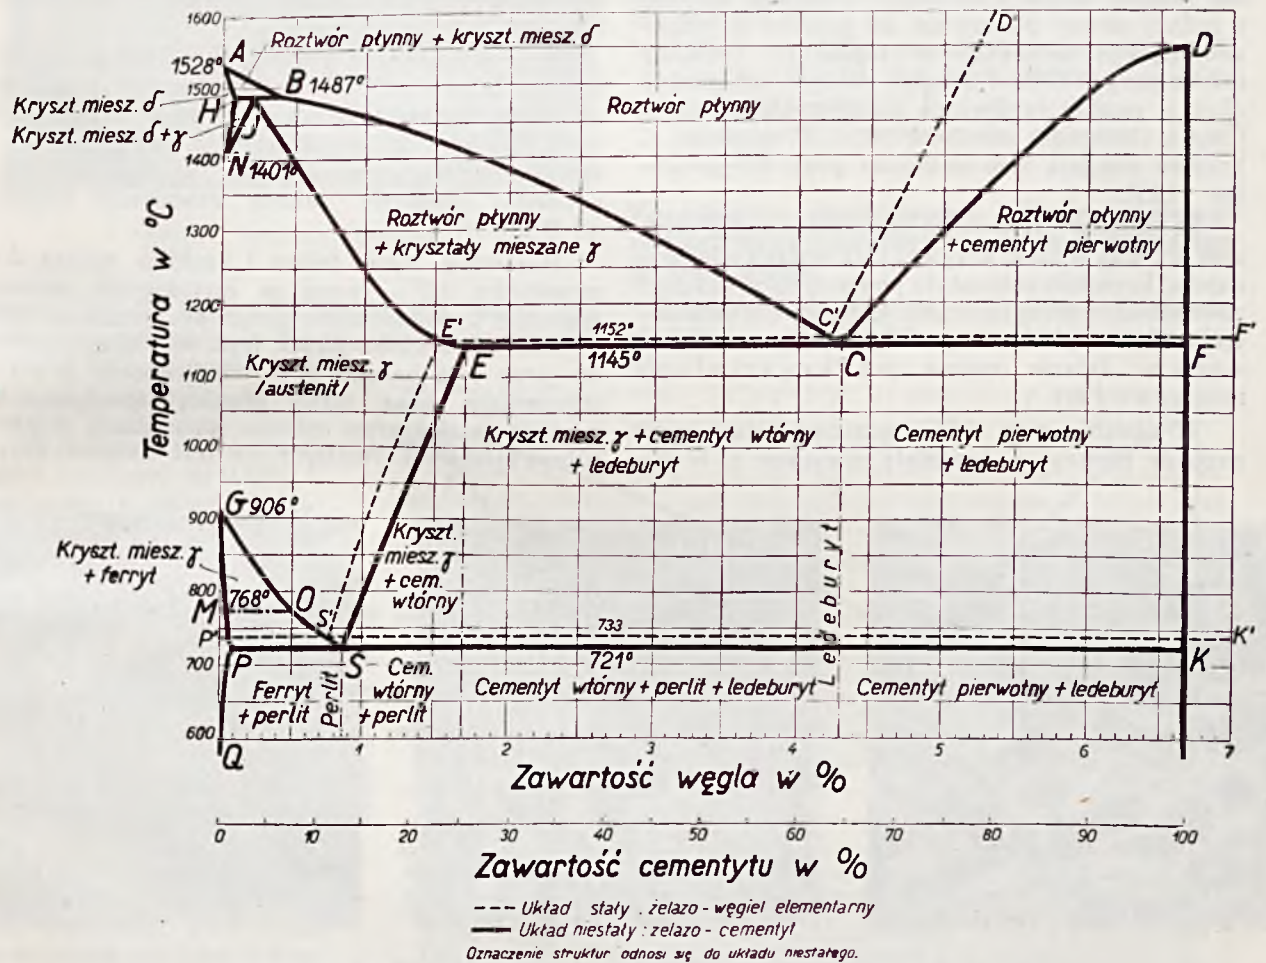 1600
Roztwór płynny + kryszt. miesz. δ
D'
A
1528°
D
B 1487°
1500
Kryszt. miesz. δ
H
Roztwór płynny
Kryszt. miesz. δ + γ
J
1400
N 1401°
Roztwór płynny
+ kryształy mieszane γ
Roztwór płynny
+ cementyt pierwotny
1300
Temperatura w °C
1200
E'
1152°
C'
F'
Kryszt. miesz. γ
/austenit/
E
1145°
C
F
1100
1000
Kryszt. miesz. γ + cementyt wtórny
+ ledeburyt
Cementyt pierwotny
+ ledeburyt
G 906°
900
Kryszt. miesz. γ
+ ferryt
Kryszt.
miesz. γ
+ cem.
wtórny
Ledeburyt
800
768°
M
O
S'
P'
733
K'
700
P
S
721°
K
Ferryt
+ perlit
Perlit
Cem.
wtórny
+ perlit
Cementyt wtórny + perlit + ledeburyt
Cementyt pierwotny + ledeburyt
600
Q
1 2 3 4 5 6 7
Zawartość węgla w %
0 10 20 30 40 50 60 70 80 90 100
Zawartość cementytu w %
--- Układ stały : żelazo - węgiel elementarny
— Układ niestały : żelazo - cementyt
Oznaczenie struktur odnosi się do układu niestałego.